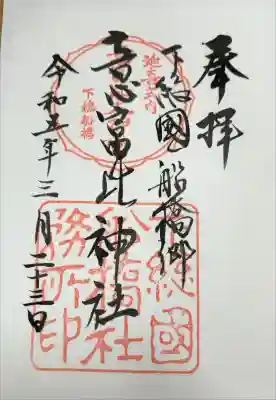 奉拝
下総國 船橋郷
意富比神社
令和五年三月二十三日
延喜式内
下総船橋
下総國
船橋社
務所印